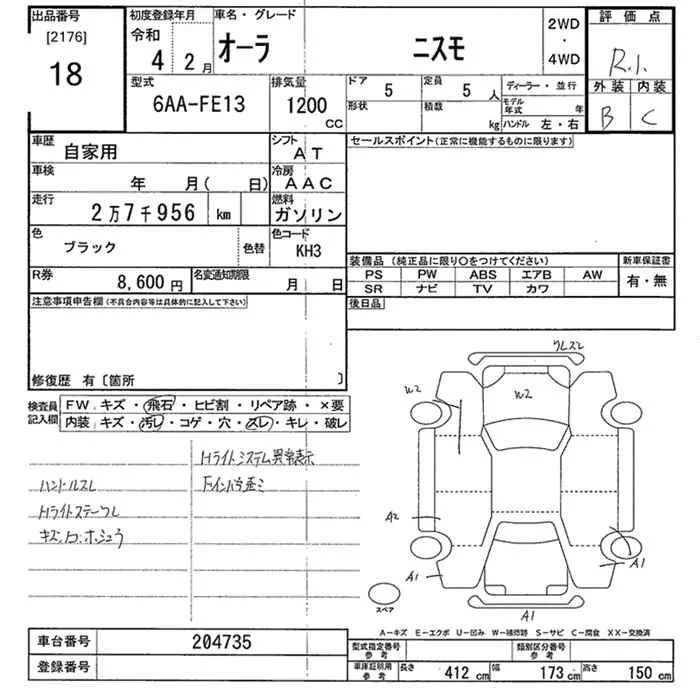 出品番号 初度登録年月 車名・グレード 2WD ・ 4WD 評価点
[2176] 18 令和 4 2月 オーラ ニスモ R.1.
外装 内装
B C
型式 6AA-FE13 排気量 1200 CC
ドア 5 定員 5 人 ディーラー・並行
形状 積数 kg モデル年式 年 ハンドル 左・右
車歴 自家用 シフト AT セールスポイント(正常に機能するものに限ります)
車検 年 月( 日) 冷房 AAC
走行 2万7千956 km 燃料 ガソリン
色 ブラック 色替 色コード KH3
装備品(純正品に限り〇をつけてください) 新車保証書
PS PW ABS エアB AW 有・無
SR ナビ TV カワ
R券 8,600円 名変通知期限 月 日
注意事項申告欄(不具合内容等は具体的に記入して下さい) 後日品
修復歴 有〔箇所 〕
検査員記入欄 FW. キズ・飛石・ヒビ割・リペア跡・×要
内装. キズ・汚レ・コゲ・穴・スレ・キレ・破レ
Hライトシステム異常表示
ハンドルスレ
Hライトステーワレ
ワレズ2
W2 W2
A2
A1 A1
A1
スペア
A-キズ E-エクボ U-凹み W-補修跡 S-サビ C-腐食 XX-交換済
車台番号 204735 型式指定番号 参考 類別区分番号 参考
登録番号 車庫証明用 参考 長さ 412 cm 幅 173 cm 高さ 150 cm